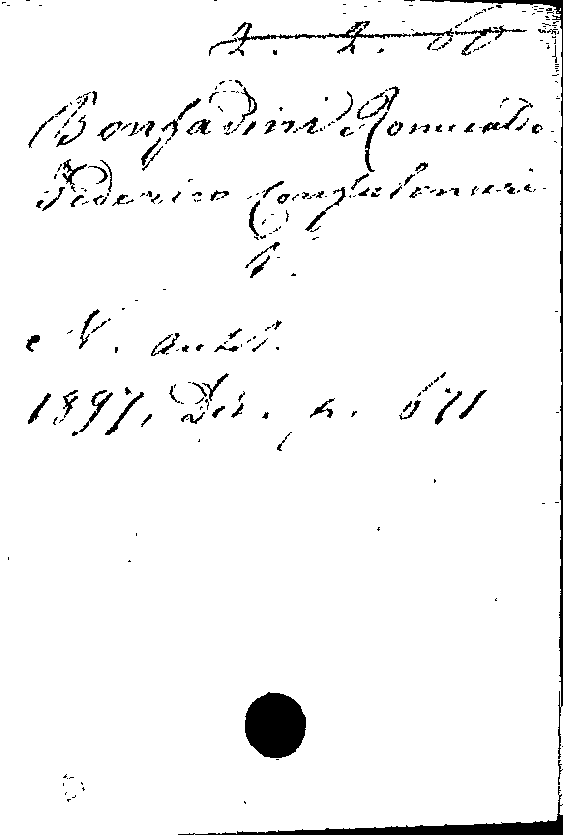 2. 2. 60
Bonfadini Romualdo
Federico Confalonieri
N. Antol.
1897, Dic. p. 671